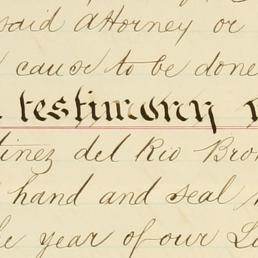 said Attorney or
cause to be done
testimony
tinez del Rio Bro
hand and seal
he year of our Lo